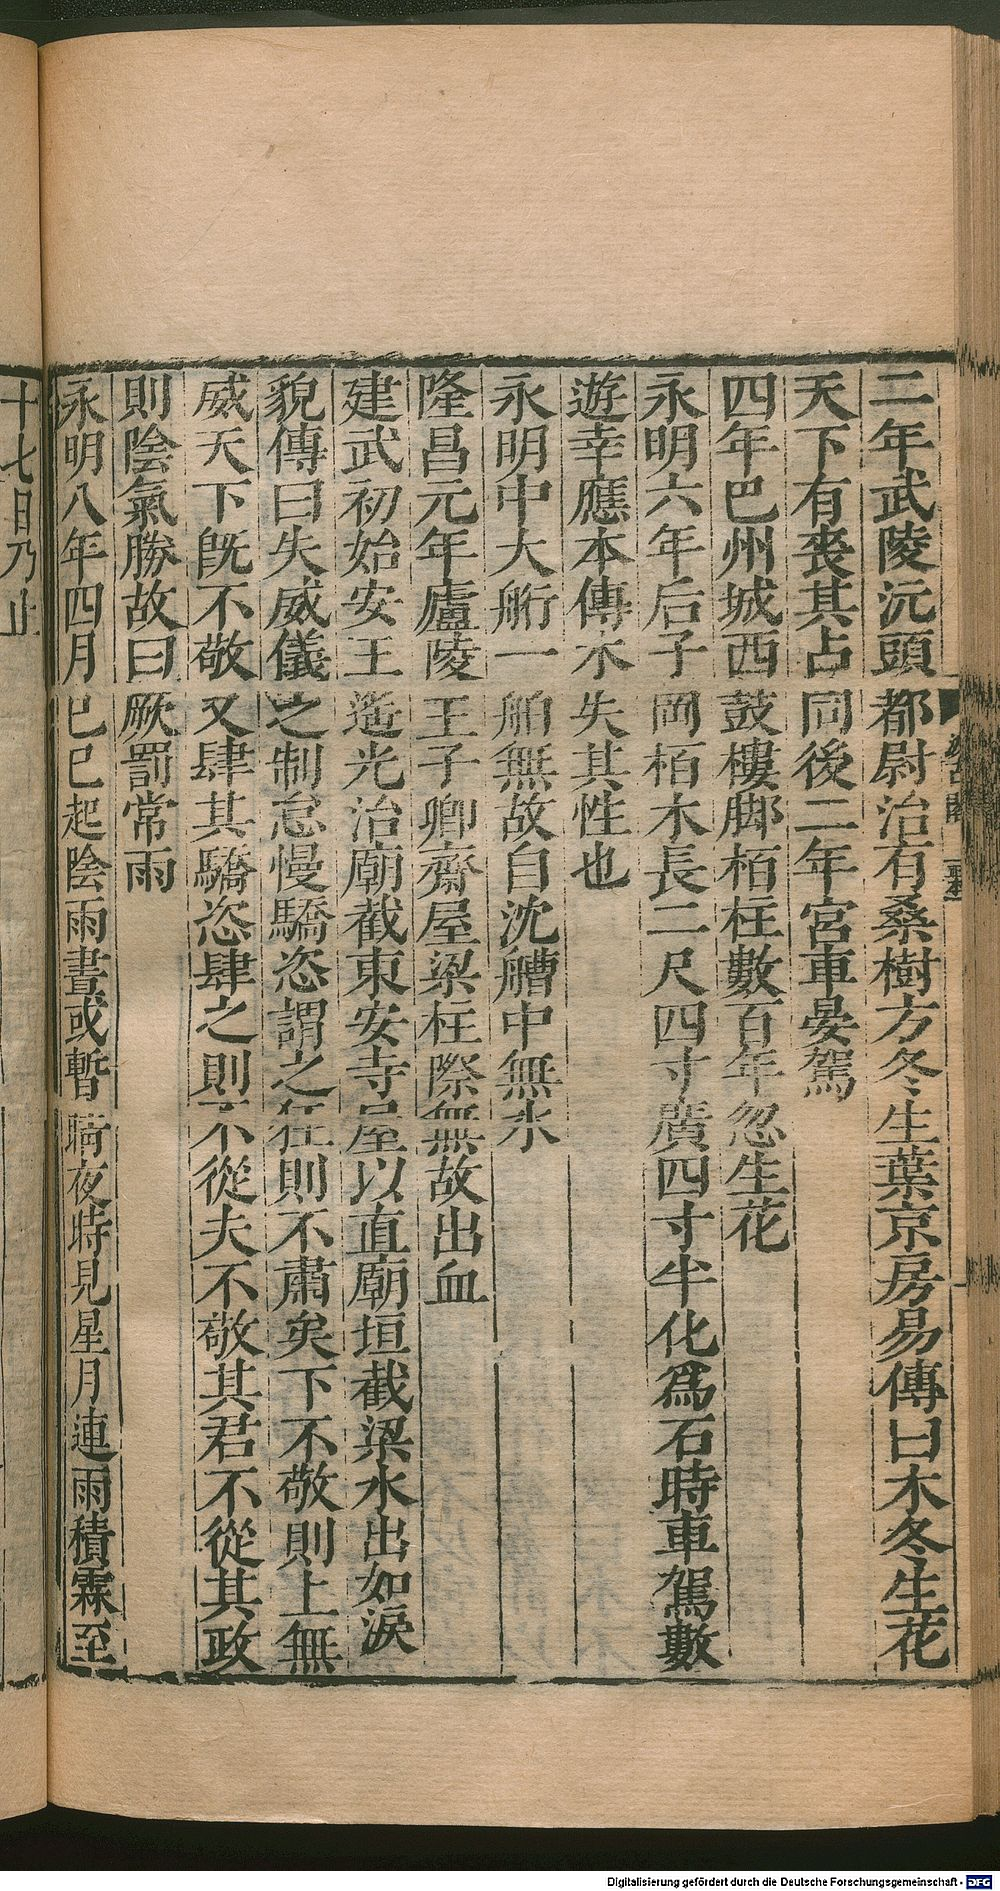 二年武陵沅頭都尉治有桑樹方冬生葉京房易傳曰木冬生花
天下有喪其占同後二年宮車晏駕
四年巴州城西鼓樓脚栢柱數百年忽生花
永明六年后子岡栢木長二尺四寸廣四寸半化爲石時車駕數
遊幸應本傳木失其性也
永明中大舫一舶無故自沈艚中無水
隆昌元年廬陵王子卿齋屋梁柱際無故出血
建武初始安王遥光治廟截東安寺屋以直廟垣截梁水出如淚
貌傳曰失威儀之制怠慢驕恣謂之狂則不肅矣下不敬則上無
威天下旣不敬又肆其驕恣肆之則不從夫不敬其君不從其政
則陰氣勝故曰厥罰常雨
永明八年四月巳巳起陰雨晝或暫晴夜時見星月連雨積霖至
十七日乃止
Digitalisierung gefördert durch die Deutsche Forschungsgemeinschaft - DFG